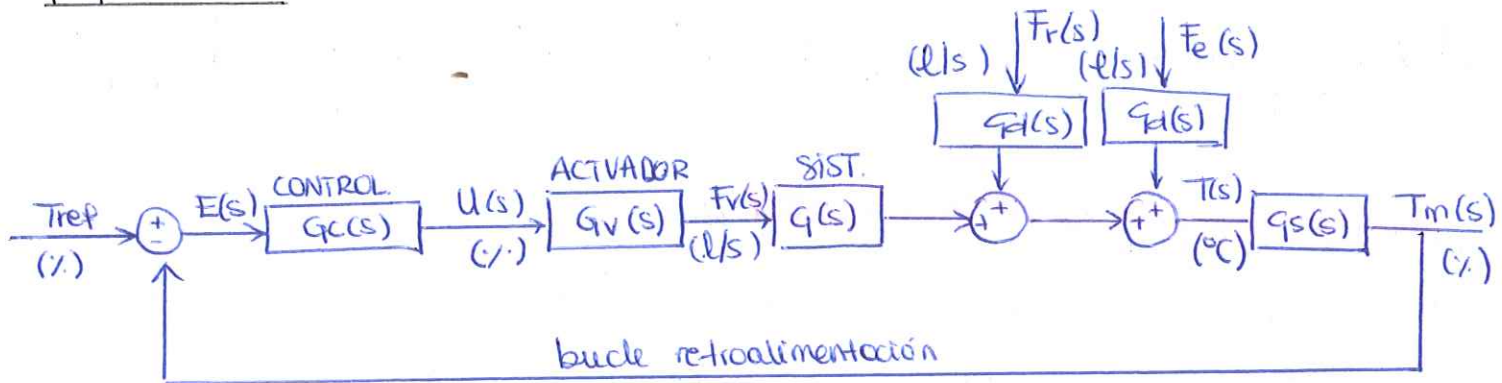 Fr(s)
(l/s)
Fe(s)
(l/s)
Gd(s)
Gd(s)
Tref
(%)
+
-
E(s)
CONTROL.
Gc(s)
U(s)
(%)
ACTUADOR
Gv(s)
Fv(s)
(l/s)
SIST.
G(s)
+ +
+ +
T(s)
(ºC)
Gs(s)
Tm(s)
(%)
bucle retroalimentación